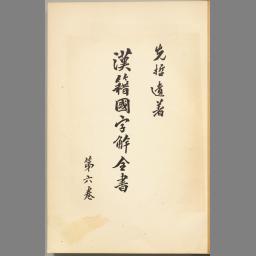 先哲遺著
漢籍國字解全書
第六卷